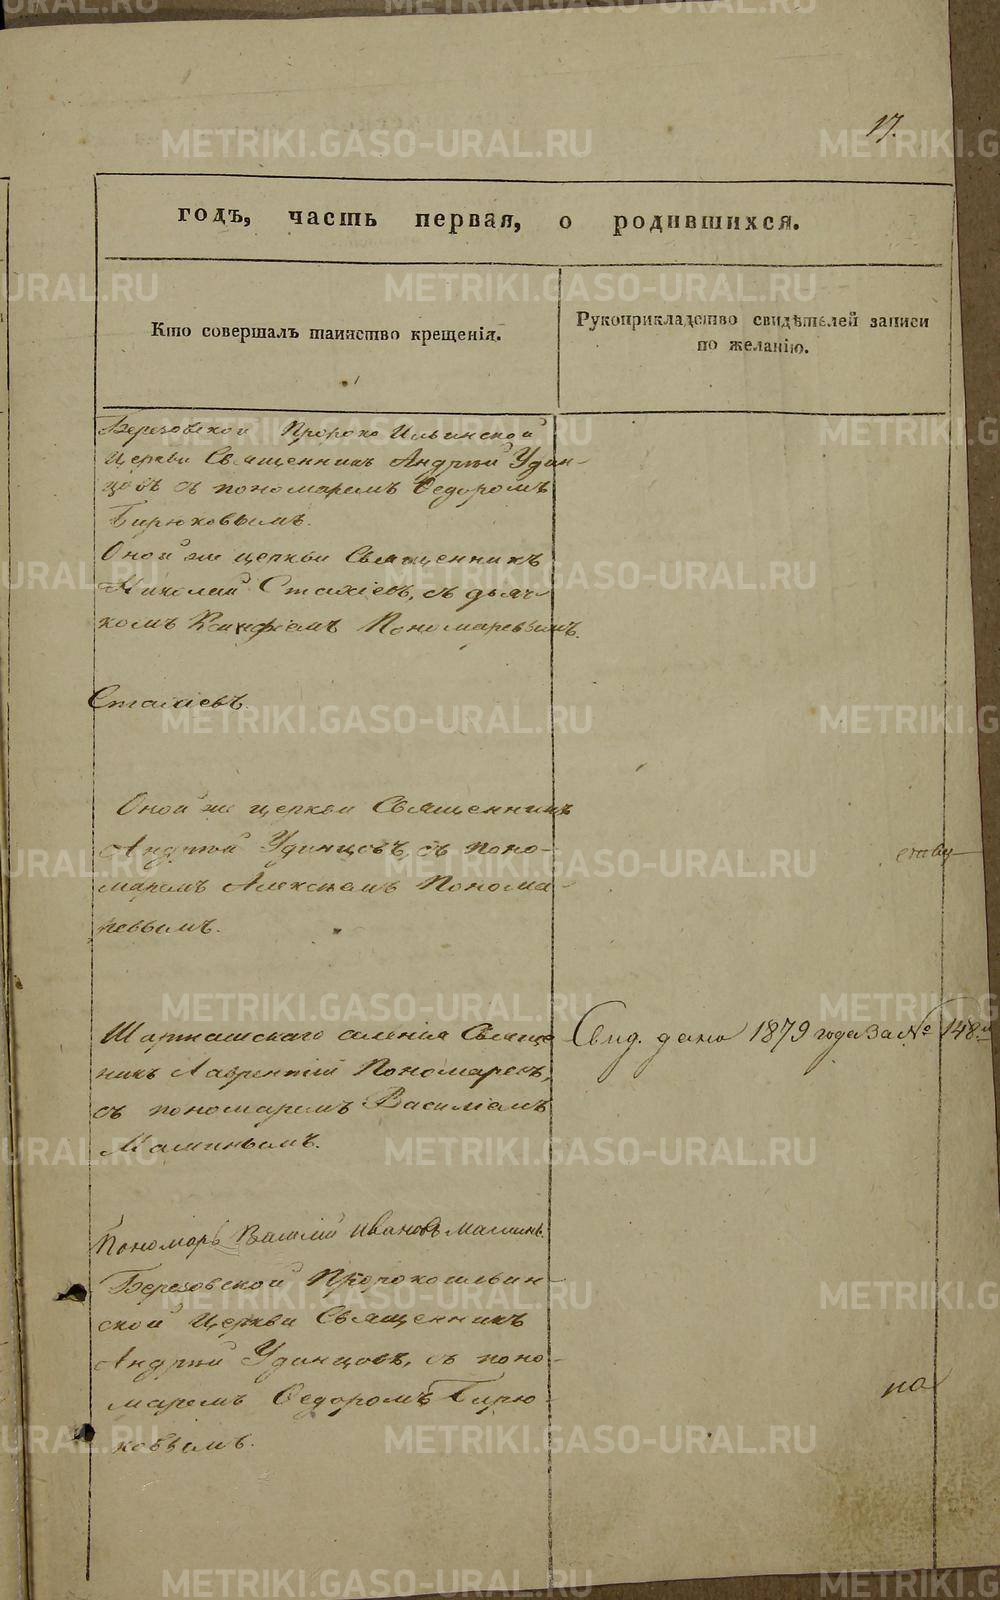 17.
годъ, часть первая, о родившихся.
Кто совершалъ таинство крещенія.
Рукоприкладство свидѣтелей записи
по желанію.
Березовской Пророко Ильинской
Церкви Священникъ Андрей Удин-
цовъ съ пономаремъ Ѳедоромъ
Бирюковымъ.
Оной же церкви Священникъ
Николай Стахіевъ, съ дьяч-
комъ Пономаревымъ.
Стахіевъ.
Оной же церкви Священникъ
Андрей Удинцовъ, съ поно-
маремъ Алексѣемъ Понома-
ревымъ.
Шарташскаго селенія Священ
никъ Лаврентій Пономаревъ,
съ пономаремъ Василіемъ
Маминымъ.
Свид. дано 1879 года за № 148.
Пономарь Василій Ивановъ Маминъ.
Березовской Пророкоильин-
ской Церкви Священникъ
Андрей Удинцовъ, съ поно-
маремъ Ѳедоромъ Бирю-
ковымъ.
METRIKI.GASO-URAL.RU